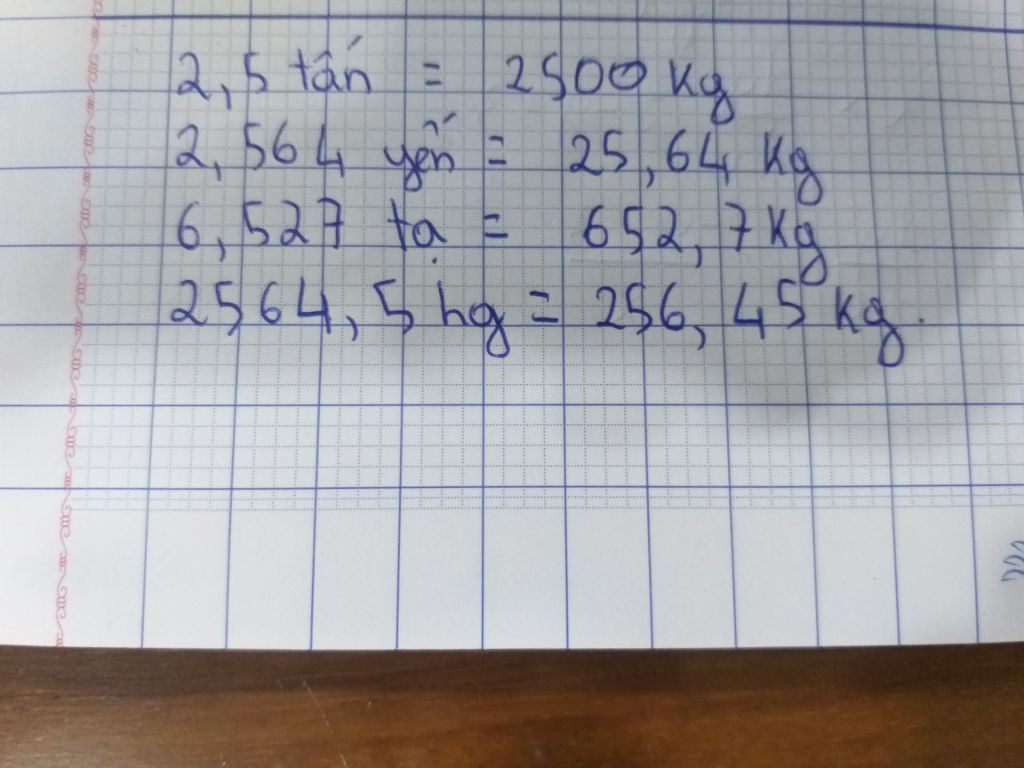 2,5 tấn = 2500 kg
2,564 yến = 25,64 kg
6,527 tạ = 652,7 kg
2564,5 hg = 256,45 kg.